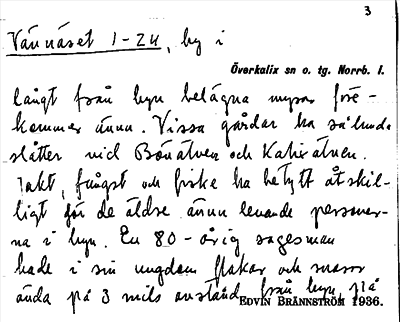 3
Vännäset 1-24, by i
Överkalix sn o. tg. Norrb. l.
långt från byn belägna myrar före-
kommer ännu. Vissa gårdar ha sålunda
slåtter vid Bönälven och Kalixälven.
Jakt, fångst och fiske ha betytt åtskil-
ligt för de äldre ännu levande personer-
na i byn. En 80-årig sagesman
hade i sin ungdom flakar och snaror
ända på 3 mils avstånd från byn, på
EDVIN BRÄNNSTRÖM 1936.